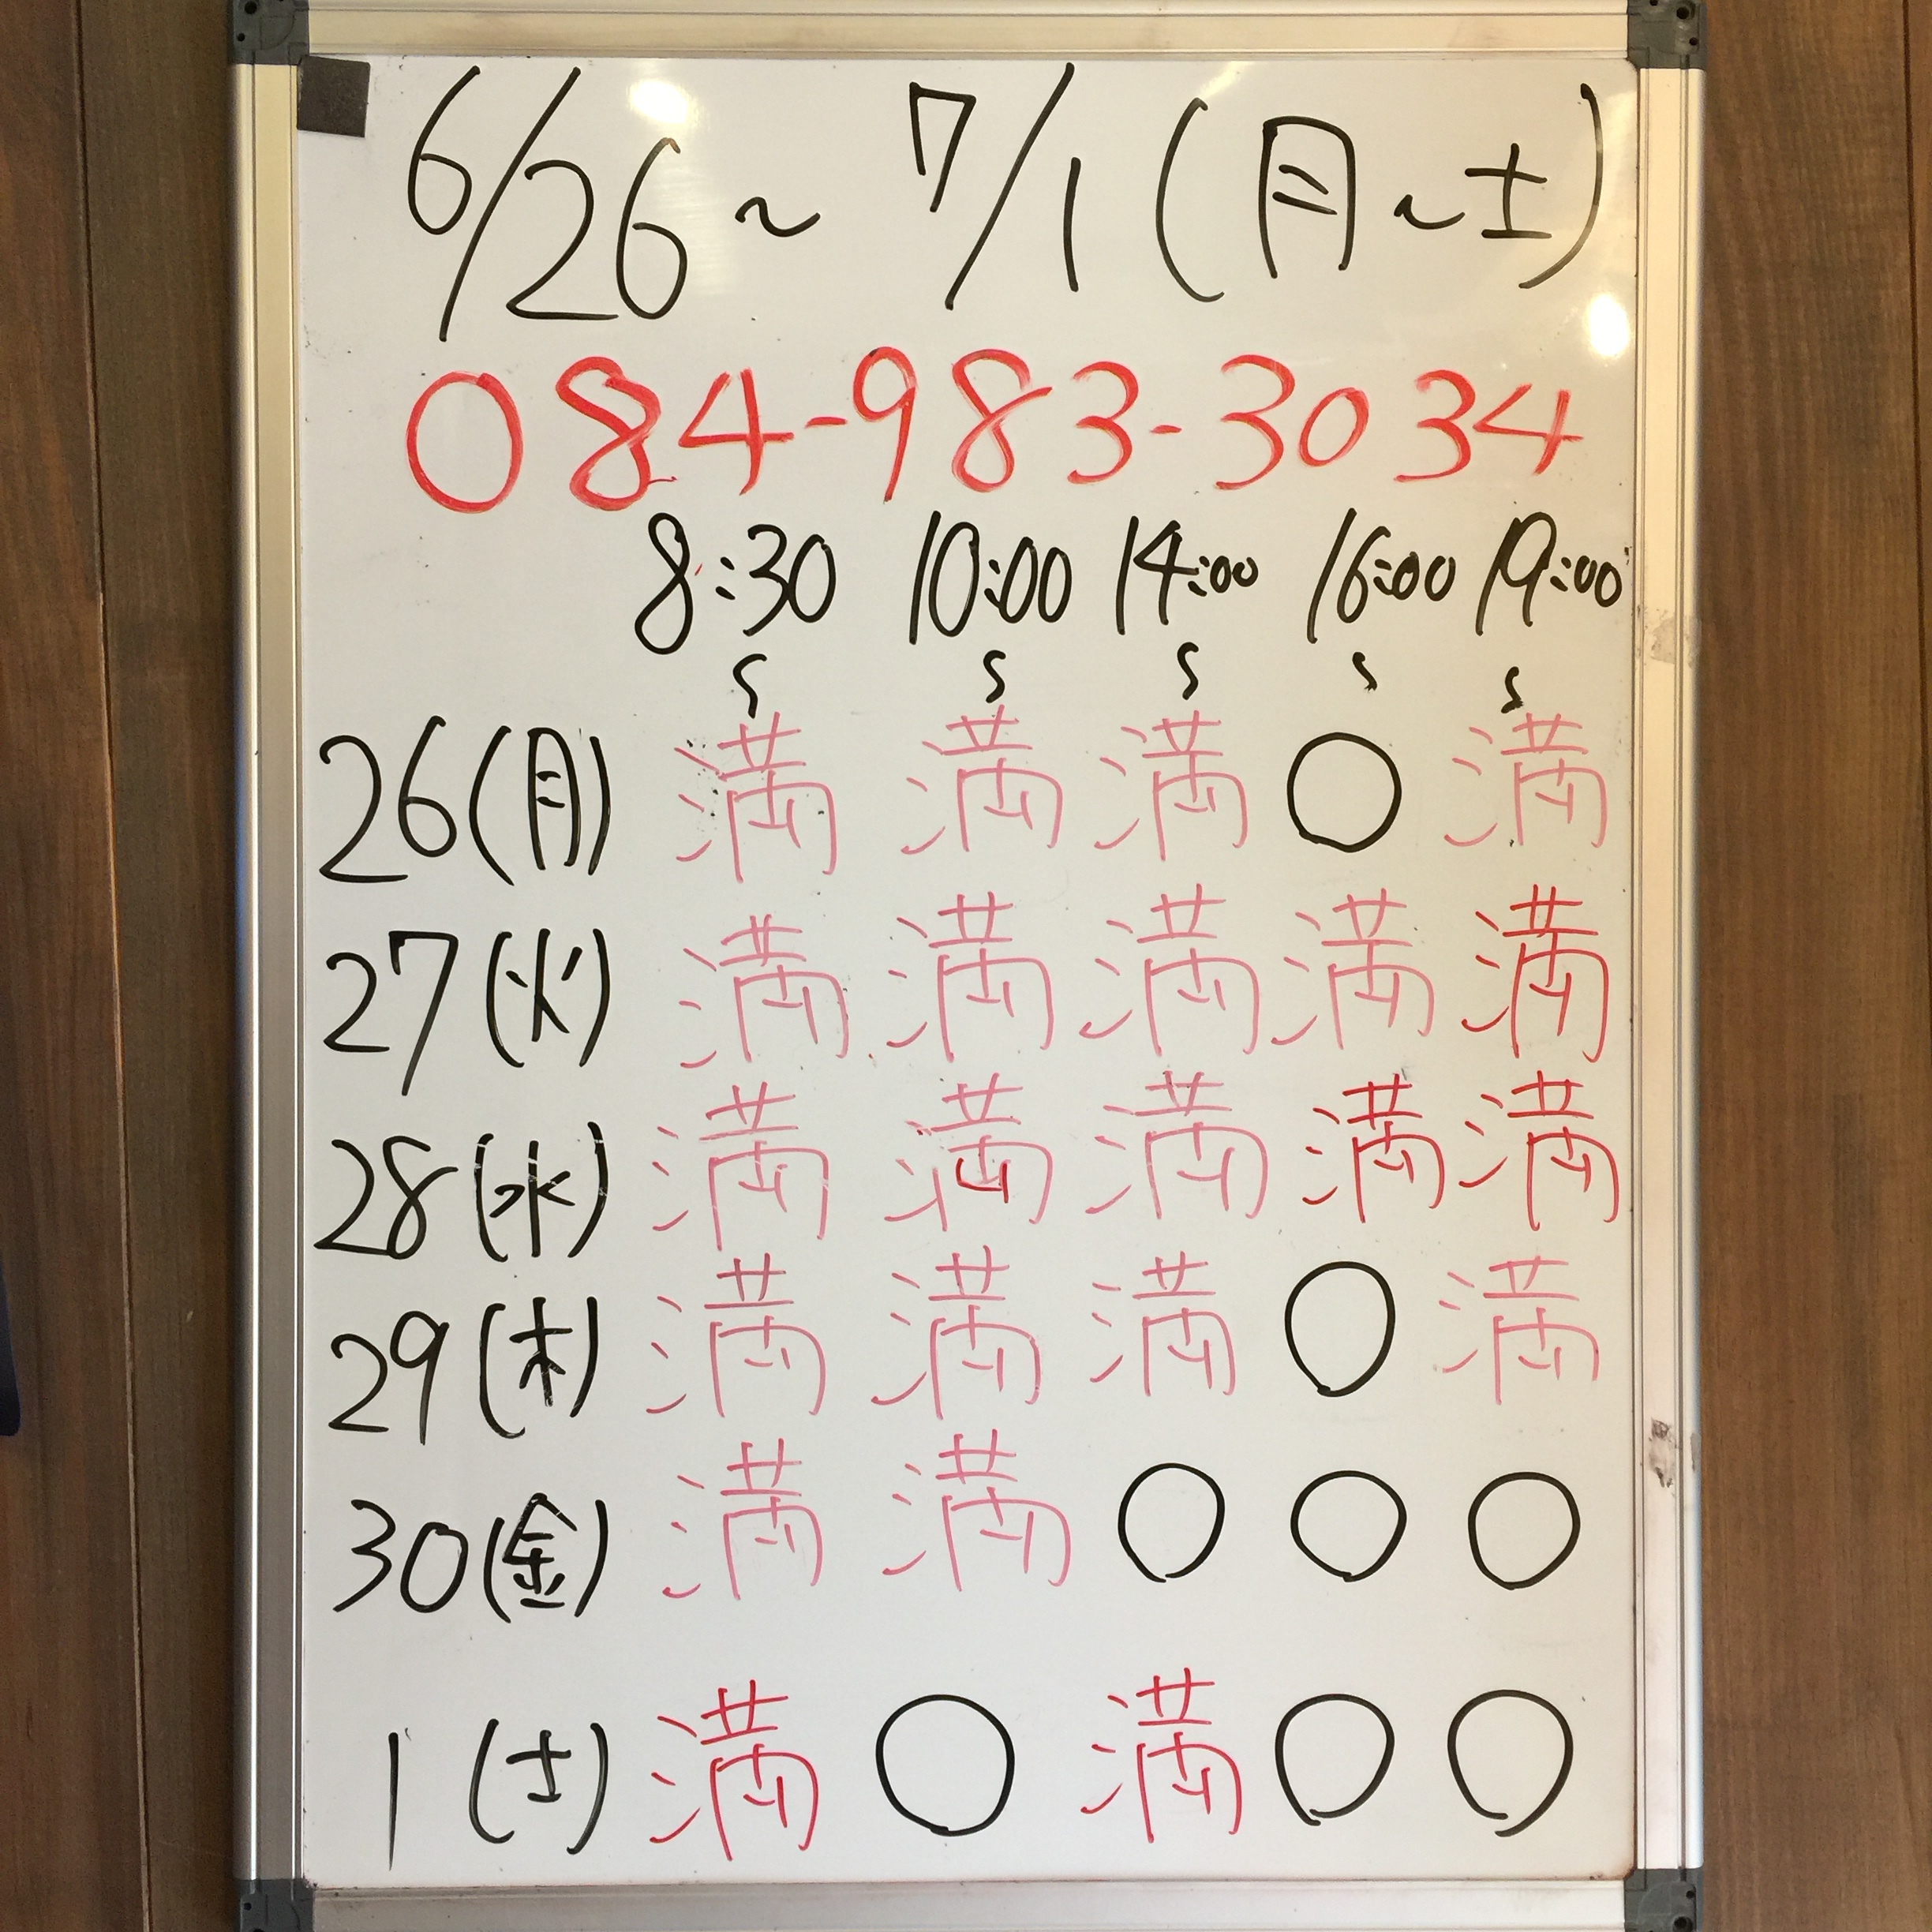 6/26～7/1(月～土)
084-983-3034
8:30 10:00 14:00 16:00 19:00
〜 〜 〜 〜 〜
26(月) 満 満 満 ○ 満
27(火) 満 満 満 満 満
28(水) 満 満 満 満 満
29(木) 満 満 満 ○ 満
30(金) 満 満 ○ ○ ○
1(土) 満 ○ 満 ○ ○